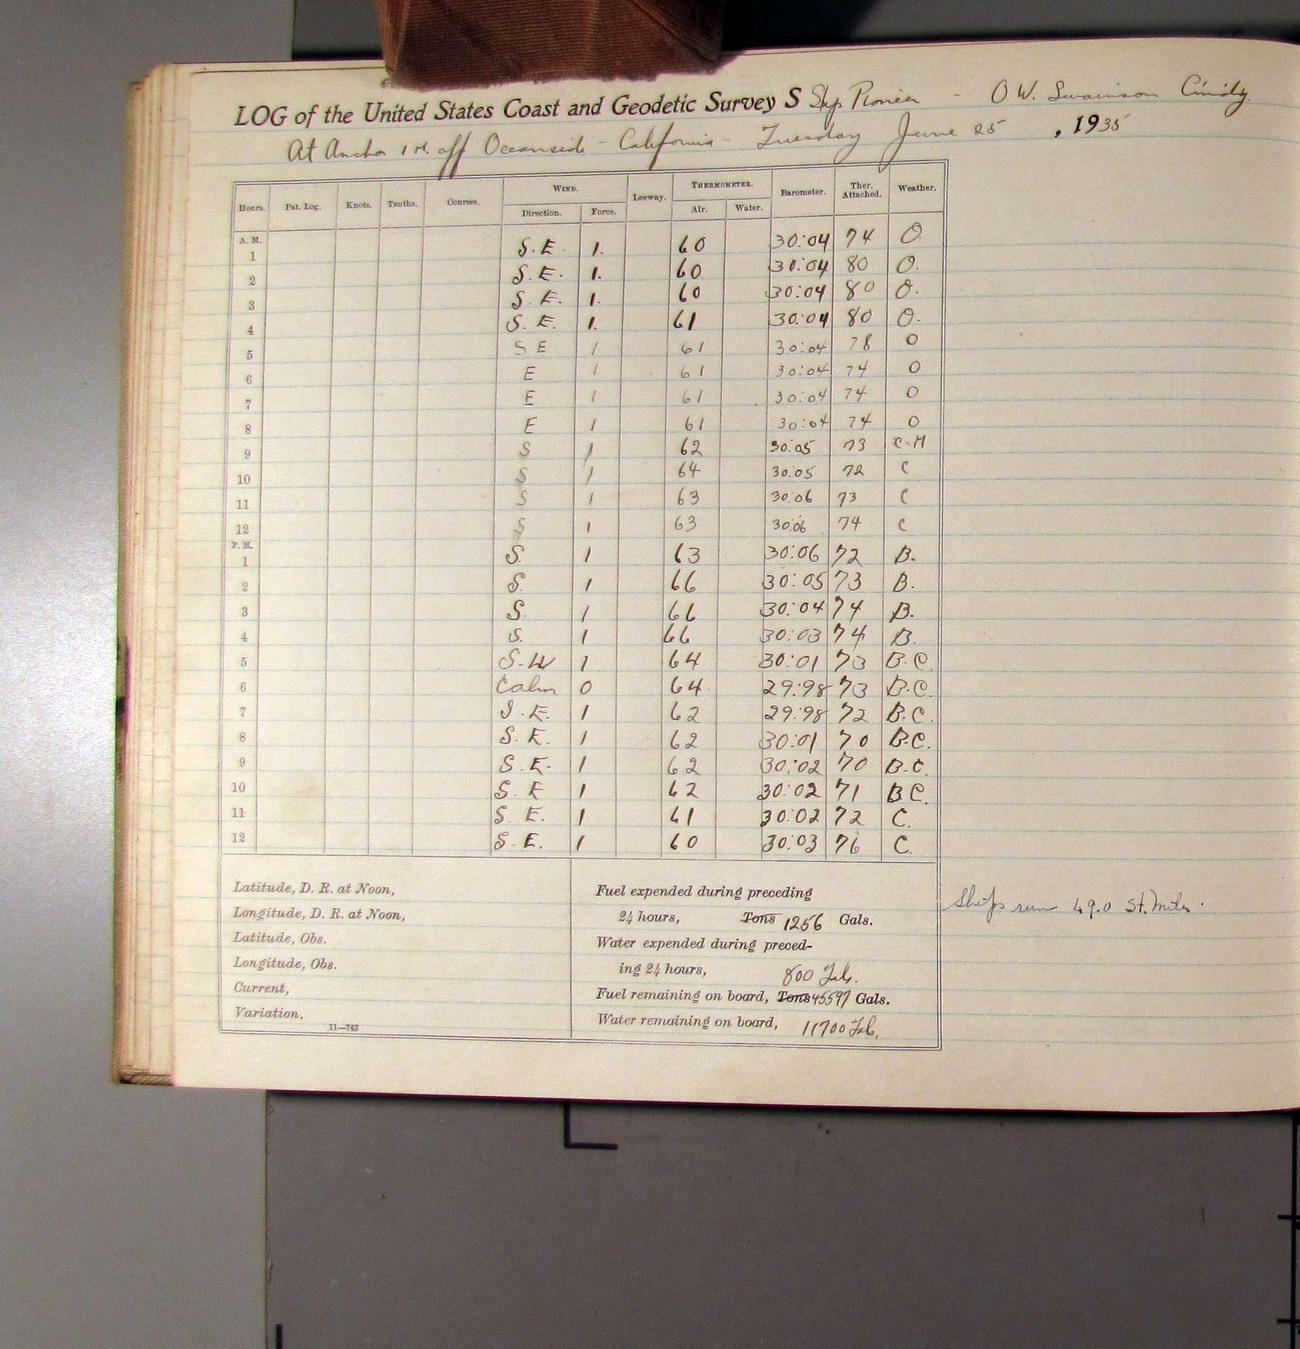 LOG of the United States Coast and Geodetic Survey S Ship Pioneer - O W. Swainson Cmdg.
At Anchor 1 M. off Oceanside - California - Tuesday June 25, 1935
Hours. Pat. Log. Knots. Tenths. Courses. WIND. Leeway. THERMOMETER. Barometer. Ther. Attached. Weather.
Direction. Force. Air. Water.
A. M.
1 S. E. 1. 60 30:04 74 O.
2 S. E. 1. 60 30:04 80 O.
3 S. E. 1. 60 30:04 80 O.
4 S. E. 1. 61 30:04 80 O.
5 S E 1 61 30:04 78 O
6 E 1 61 30:04 74 O
7 E 1 61 30:04 74 O
8 E 1 61 30:04 74 O
9 S 1 62 30:05 73 C-M
10 S 1 64 30.05 72 C
11 S 1 63 30.06 73 C
12 S 1 63 30.06 74 C
P. M.
1 S. 1 63 30:06 72 B.
2 S. 1 66 30:05 73 B.
3 S. 1 66 30:04 74 B.
4 S. 1 66 30:03 74 B.
5 S.W 1 64 30:01 73 B.C.
6 Calm 0 64 29:98 73 B.C.
7 S.E. 1 62 29:98 72 B.C.
8 S.E. 1 62 30:01 70 B.C.
9 S.E. 1 62 30:02 70 B.C.
10 S.E 1 62 30:02 71 B.C.
11 S.E. 1 61 30:02 72 C.
12 S.E. 1 60 30:03 76 C.
Latitude, D. R. at Noon,
Longitude, D. R. at Noon,
Latitude, Obs.
Longitude, Obs.
Current,
Variation,
11—743
Fuel expended during preceding
24 hours, Tons 1256 Gals.
Water expended during preced-
ing 24 hours, 800 Gals.
Fuel remaining on board, Tons 45597 Gals.
Water remaining on board, 11700 Gals.
Ships run 49.0 St. Miles.